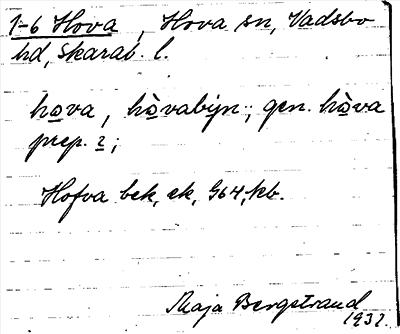 1-6 Hova, Hova sn, Vadsbo
hd, Skarab. l.
hova, hòvabyn; gen. hòva
prep. i;
Hofva bek, ek, G64, kb.
Maja Bergstrand
1932.